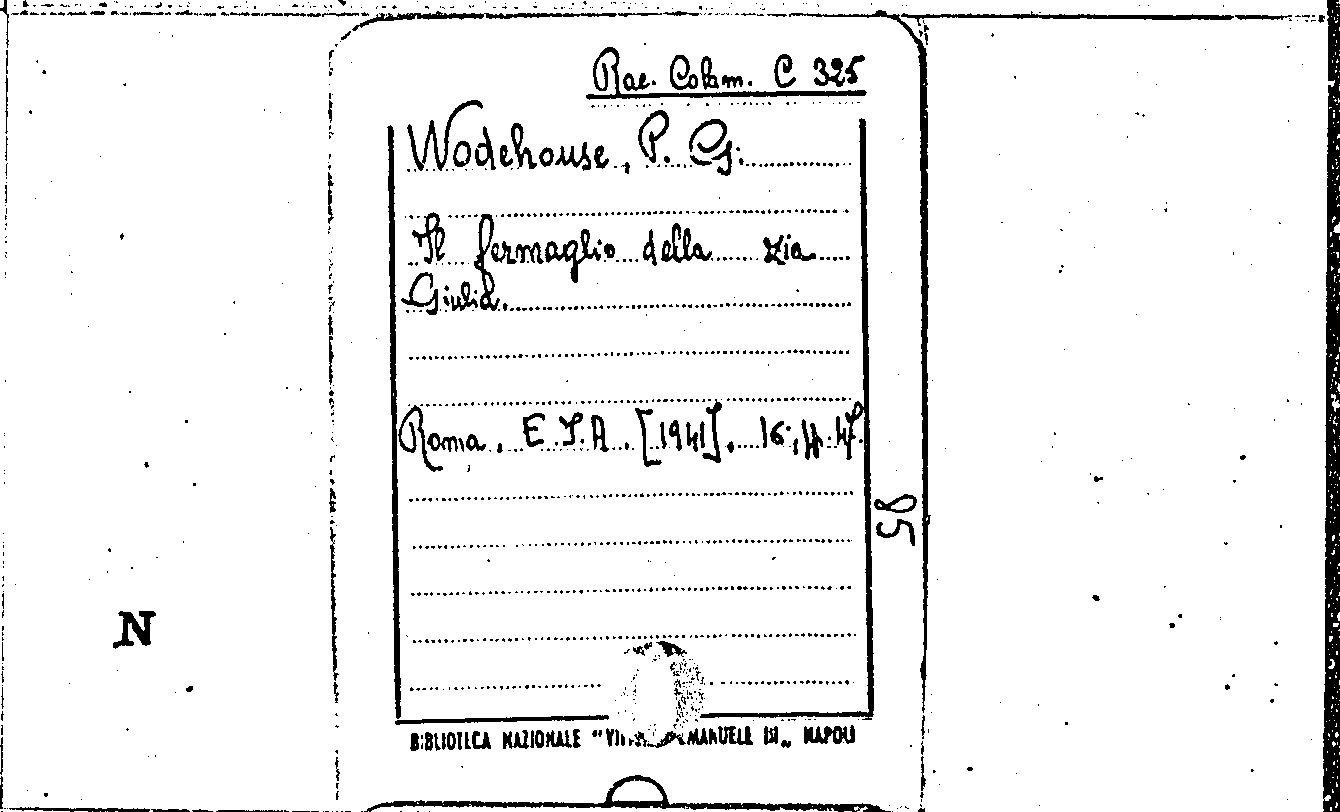 Rac. Colam. C 325
Wodehouse, P. G.
Il fermaglio della zia
Giulia.
Roma. E.I.A. [1941]. 16°, pp. 47.
95
N
BIBLIOTECA NAZIONALE "VITT. EMANUELE III„ NAPOLI